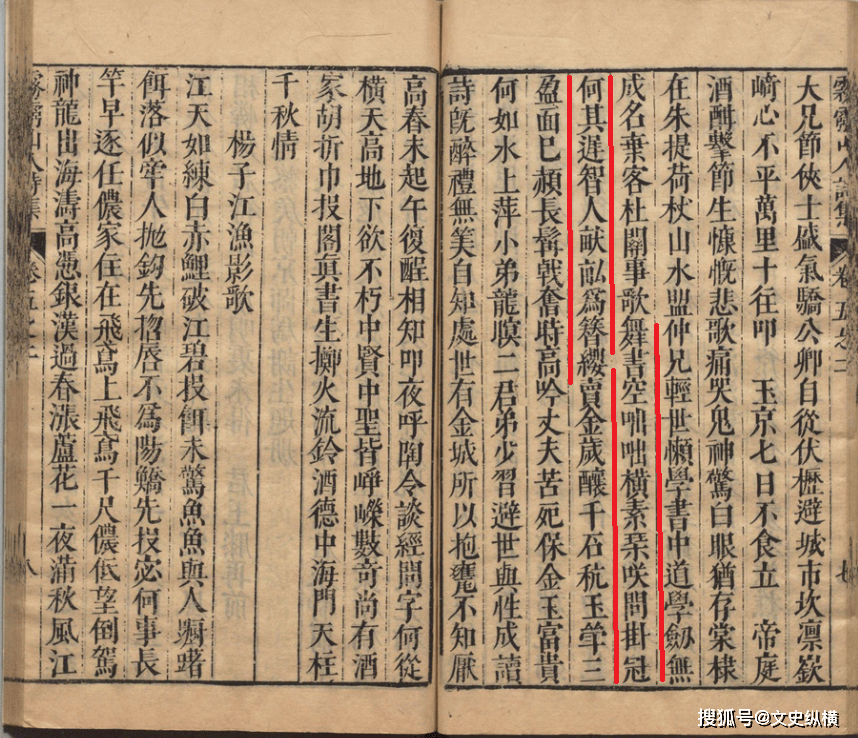 大兄節俠士盛氣驕公卿自從伏櫪避城市坎凛嶔
崎心不平萬里十往叩 玉京七日不食立 帝庭
酒酣擊節生慷慨悲歌痛哭鬼神驚白眼猶存棠棣
在朱提荷杖山水盟仲兄輕世懶學書中道學劒無
成名棄客杜關事歌舞書空咄咄橫素琹咲問掛冠
何其遲智人献訟為簪纓賣金歲釀千石秔玉擧三
盈面已頳長髯戟奮時高吟丈夫苦死保金玉富貴
何如水上萍小弟龍暝二君弟少習避世與性成讀
詩旣醉禮無笑自知處世有金城所以抱甕不知厭
卷五之二
七
高舂未起午復醒相知叩夜呼陶令談經問字何從
橫天高地下欲不朽中賢中聖皆崢嶸數奇尚有酒
家胡折巾投閣眞書生擲火流鈴酒德中海門天柱
千秋情
楊子江漁影歌
江天如練白赤鯉破江碧投餌未驚魚魚與人嬾踏
餌落似牽人抛鈎先搯唇不為陽鱎先投宓何事長
竿早逐任儂家住在飛鳶上飛鳶千尺儂低望倒駕
神龍出海濤高憑銀漢過春漲蘆花一夜滿秋風江
卷五之二
八
搜狐号@文史纵横